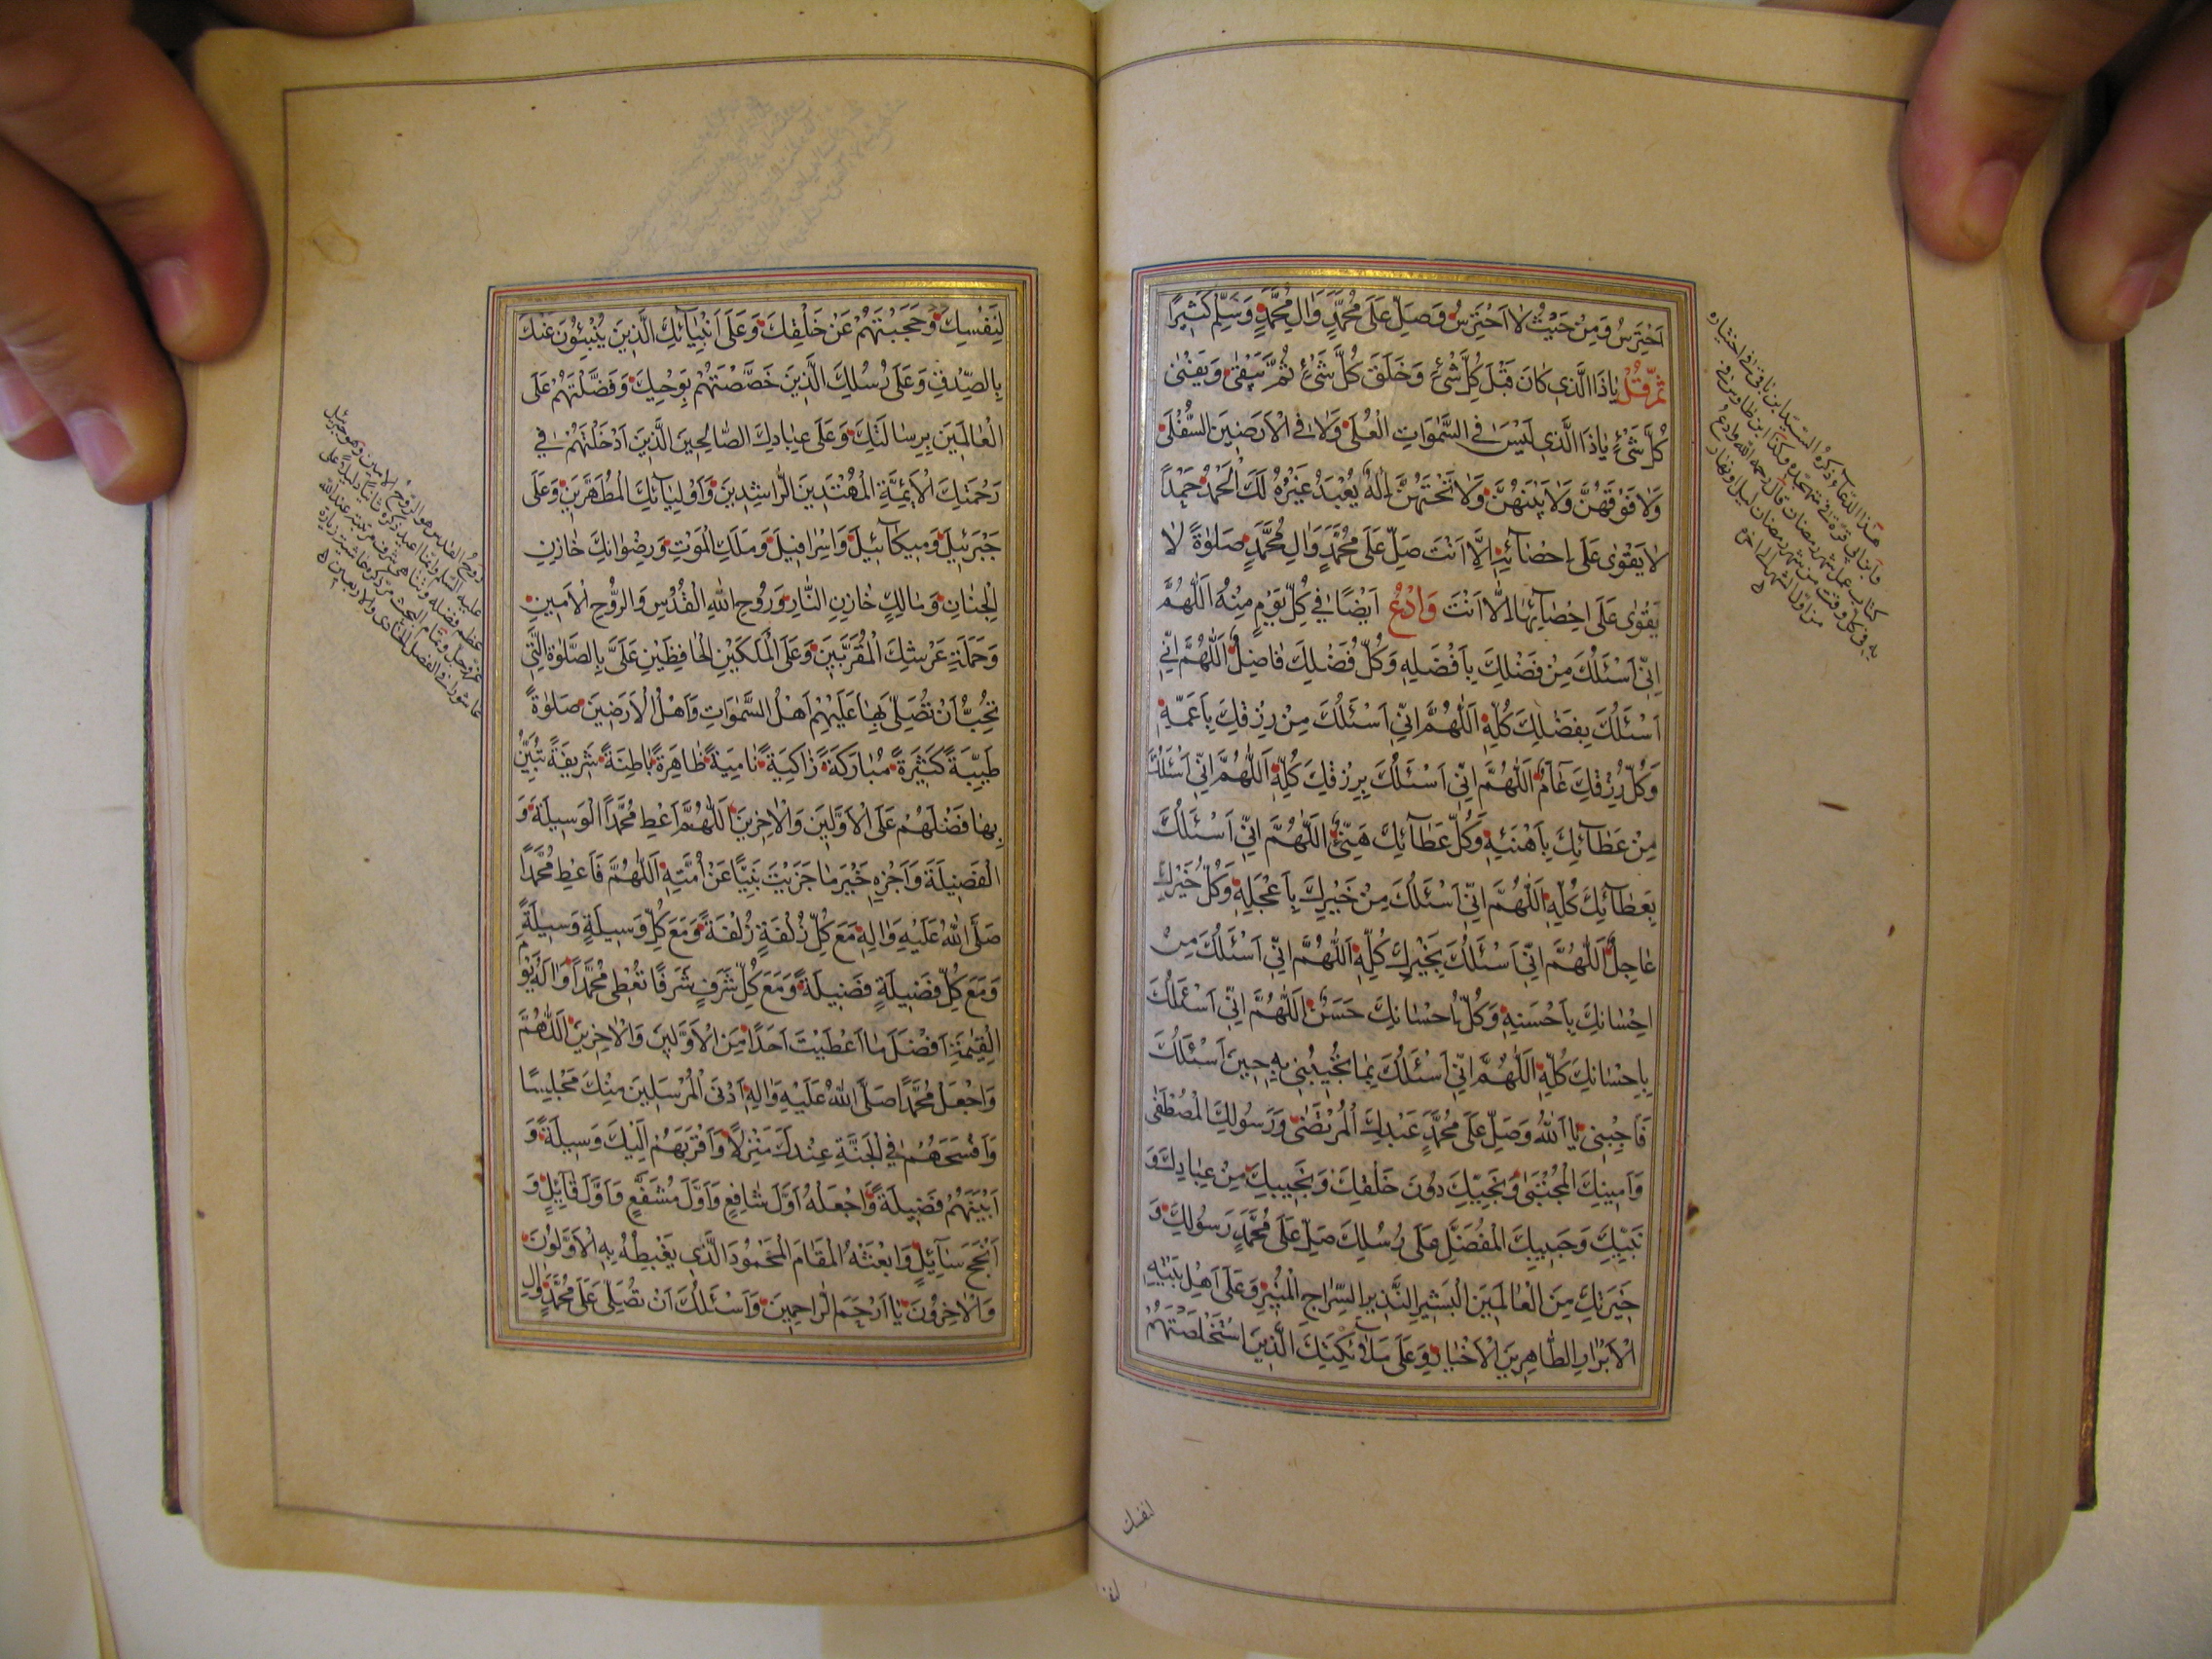 اَحْتَرِسُ وَمِنْ حَيْثُ لا اَحْتَرِسُ وَصَلِّ عَلَى مُحَمَّدٍ وَالِ مُحَمَّدٍ وَسَلِّمْ كَثِيرًا
ثُمَّ قُلْ يَاذَا الَّذِي كَانَ قَبْلَ كُلِّ شَيْءٍ وَخَلَقَ كُلَّ شَيْءٍ ثُمَّ يَبْقَى وَيَفْنَى
كُلُّ شَيْءٍ يَاذَا الَّذِي لَيْسَ فِي السَّمَوَاتِ الْعُلَى وَلَا فِي الْاَرَضِينَ السُّفْلَى
وَلَا فَوْقَهُنَّ وَلَا بَيْنَهُنَّ وَلَا تَحْتَهُنَّ اِلَهٌ يُعْبَدُ غَيْرُهُ لَكَ الْحَمْدُ حَمْدًا
لَا يَقْوَى عَلَى اِحْصَآئِهِ اِلَّا اَنْتَ صَلِّ عَلَى مُحَمَّدٍ وَالِ مُحَمَّدٍ صَلَوةً لَا
يَقْوَى عَلَى اِحْصَآئِهَا اِلَّا اَنْتَ وَادْعُ اَيْضًا فِي كُلِّ يَوْمٍ مِنْهُ اَللَّهُمَّ
اِنِّي اَسْئَلُكَ مِنْ فَضْلِكَ بِاَفْضَلِهِ وَكُلُّ فَضْلِكَ فَاضِلٌ اَللَّهُمَّ اِنِّي
اَسْئَلُكَ بِفَضْلِكَ كُلِّهِ اَللَّهُمَّ اِنِّي اَسْئَلُكَ مِنْ رِزْقِكَ بِاَعَمِّهِ
وَكُلُّ رِزْقِكَ عَآمٌّ اَللَّهُمَّ اِنِّي اَسْئَلُكَ بِرِزْقِكَ كُلِّهِ اَللَّهُمَّ اِنِّي اَسْئَلُكَ
مِنْ عَطَآئِكَ بِاَهْنَئِهِ وَكُلُّ عَطَآئِكَ هَنِيءٌ اَللَّهُمَّ اِنِّي اَسْئَلُكَ
بِعَطَآئِكَ كُلِّهِ اَللَّهُمَّ اِنِّي اَسْئَلُكَ مِنْ خَيْرِكَ بِاَعْجَلِهِ وَكُلُّ خَيْرِكَ
عَاجِلٌ اَللَّهُمَّ اِنِّي اَسْئَلُكَ بِخَيْرِكَ كُلِّهِ اَللَّهُمَّ اِنِّي اَسْئَلُكَ مِنْ
اِحْسَانِكَ بِاَحْسَنِهِ وَكُلُّ اِحْسَانِكَ حَسَنٌ اَللَّهُمَّ اِنِّي اَسْئَلُكَ
بِاِحْسَانِكَ كُلِّهِ اَللَّهُمَّ اِنِّي اَسْئَلُكَ بِمَا تُجِيبُنِي بِهِ حِينَ اَسْئَلُكَ
فَاَجِبْنِي يَا اَللهُ وَصَلِّ عَلَى مُحَمَّدٍ عَبْدِكَ الْمُرْتَضَى وَرَسُولِكَ الْمُصْطَفَى
وَاَمِينِكَ الْمُجْتَبَى وَنَجِيِّكَ دُونَ خَلْقِكَ وَنَجِيبِكَ مِنْ عِبَادِكَ وَ
نَبِيِّكَ وَحَبِيبِكَ الْمُفَضَّلِ عَلَى رُسُلِكَ صَلِّ عَلَى مُحَمَّدٍ رَسُولِكَ وَ
خِيَرَتِكَ مِنَ الْعَالَمِينَ الْبَشِيرِ النَّذِيرِ السِّرَاجِ الْمُنِيرِ وَعَلَى اَهْلِ بَيْتِهِ
الْاَبْرَارِ الطَّاهِرِينَ الْاَخْيَارِ وَعَلَى مَلَآئِكَتِكَ الَّذِينَ اسْتَخْلَصْتَهُمْ
لنفسك
لِنَفْسِكَ وَحَجَبْتَهُمْ عَنْ خَلْقِكَ وَعَلَى اَنْبِيَآئِكَ الَّذِينَ يُنْبِئُونَ عَنْكَ
بِالصِّدْقِ وَعَلَى رُسُلِكَ الَّذِينَ خَصَّصْتَهُمْ بِوَحْيِكَ وَفَضَّلْتَهُمْ عَلَى
الْعَالَمِينَ بِرِسَالَتِكَ وَعَلَى عِبَادِكَ الصَّالِحِينَ الَّذِينَ اَدْخَلْتَهُمْ فِي
رَحْمَتِكَ الْاَئِمَّةِ الْمُهْتَدِينَ الرَّاشِدِينَ وَاَوْلِيَآئِكَ الْمُطَهَّرِينَ وَعَلَى
جَبْرَئِيلَ وَمِيكَآئِيلَ وَاِسْرَافِيلَ وَمَلَكِ الْمَوْتِ وَرِضْوَانَ خَازِنِ
الْجِنَانِ وَمَالِكٍ خَازِنِ النَّارِ وَرُوحِ اللهِ الْقُدُسِ وَالرُّوحِ الْاَمِينِ
وَحَمَلَةِ عَرْشِكَ الْمُقَرَّبِينَ وَعَلَى الْمَلَكَيْنِ الْحَافِظَيْنِ عَلَيَّ بِالصَّلَوةِ الَّتِي
تُحِبُّ اَنْ تُصَلِّيَ بِهَا عَلَيْهِمْ اَهْلُ السَّمَوَاتِ وَاَهْلُ الْاَرَضِينَ صَلَوةً
طَيِّبَةً كَثِيرَةً مُبَارَكَةً زَاكِيَةً نَامِيَةً ظَاهِرَةً بَاطِنَةً شَرِيفَةً تُبَيِّنُ
بِهَا فَضْلَهُمْ عَلَى الْاَوَّلِينَ وَالْاخِرِينَ اَللَّهُمَّ اَعْطِ مُحَمَّدًا الْوَسِيلَةَ وَ
الْفَضِيلَةَ وَاَجْزِهِ خَيْرَ مَا جَزَيْتَ نَبِيًّا عَنْ اُمَّتِهِ اَللَّهُمَّ فَاَعْطِ مُحَمَّدًا
صَلَّى اللهُ عَلَيْهِ وَالِهِ مَعَ كُلِّ زُلْفَةٍ زُلْفَةً وَمَعَ كُلِّ وَسِيلَةٍ وَسِيلَةً
وَمَعَ كُلِّ فَضِيلَةٍ فَضِيلَةً وَمَعَ كُلِّ شَرَفٍ شَرَفًا تُعْطِي مُحَمَّدًا وَالَهُ يَوْمَ
الْقِيَمَةِ اَفْضَلَ مَا اَعْطَيْتَ اَحَدًا مِنَ الْاَوَّلِينَ وَالْاخِرِينَ اَللَّهُمَّ
وَاجْعَلْ مُحَمَّدًا صَلَّى اللهُ عَلَيْهِ وَالِهِ اَدْنَى الْمُرْسَلِينَ مِنْكَ مَجْلِسًا
وَاَفْسَحَهُمْ فِي الْجَنَّةِ عِنْدَكَ مَنْزِلًا وَاَقْرَبَهُمْ اِلَيْكَ وَسِيلَةً وَ
اَبْيَنَهُمْ فَضِيلَةً وَاجْعَلْهُ اَوَّلَ شَافِعٍ وَاَوَّلَ مُشَفَّعٍ وَاَوَّلَ قَآئِلٍ وَ
اَنْجَحَ سَآئِلٍ وَابْعَثْهُ الْمَقَامَ الْمَحْمُودَ الَّذِي يَغْبِطُهُ بِهِ الْاَوَّلُونَ
وَالْاخِرُونَ يَا اَرْحَمَ الرَّاحِمِينَ وَاَسْئَلُكَ اَنْ تُصَلِّيَ عَلَى مُحَمَّدٍ وَالِ